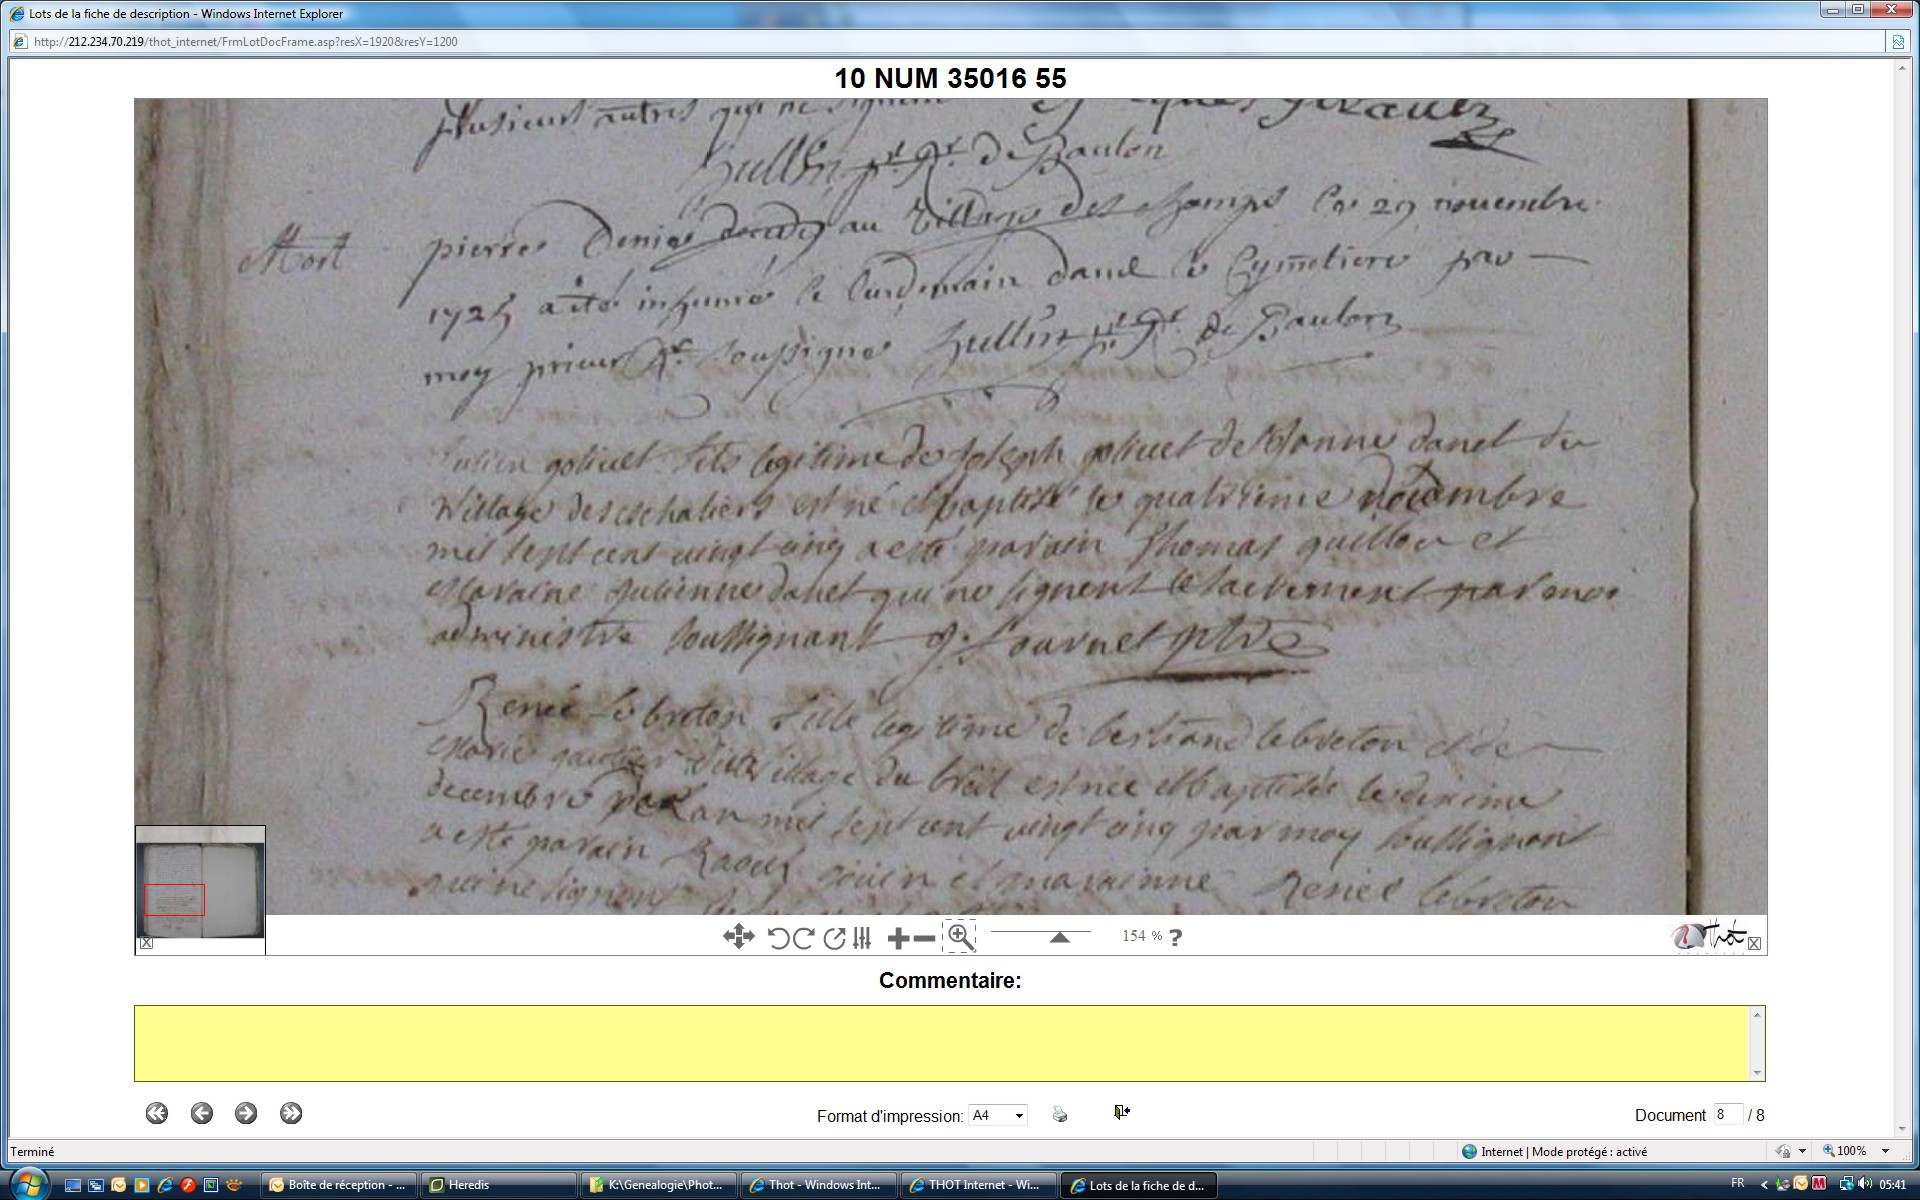 Lots de la fiche de description - Windows Internet Explorer
http://212.234.70.219/thot_internet/FrmLotDocFrame.asp?resX=1920&resY=1200
10 NUM 35016 55
plusieurs autres qui ne signent
de Baulon
Mort
pierre Denies decedé au village des champs le 29 novembre
1725 a eté inhumé le lendemain dans le Cymetiere par
moy prieur Rr soussigné de Baulon
Julien goliuet fils legitime de Joseph goliuet de Janne danet du
Village des eschaliers est né et baptisé le quatrieme novembre
mil sept cent vingt cinq a esté parain Thomas guillou et
Maraine Julienne danet qui ne signent le sacrement par moi
administré soussignant ptre
Renée le breton fille legitime de bertrand lebreton et de
Marie gautier du village du breil est née et baptisée le dixieme
decembre mil sept cent vingt cinq par moy soussignant
a esté parain Raoul et marainne Renée lebreton
qui ne signent
154 % ?
Thot
Commentaire:
Format d'impression: A4
Document 8 / 8
Terminé
Internet | Mode protégé : activé
100%
Boîte de réception - ...
Heredis
K:\Genealogie\Phot...
Thot - Windows Int...
THOT Internet - Wi...
Lots de la fiche de d...
FR
05:41